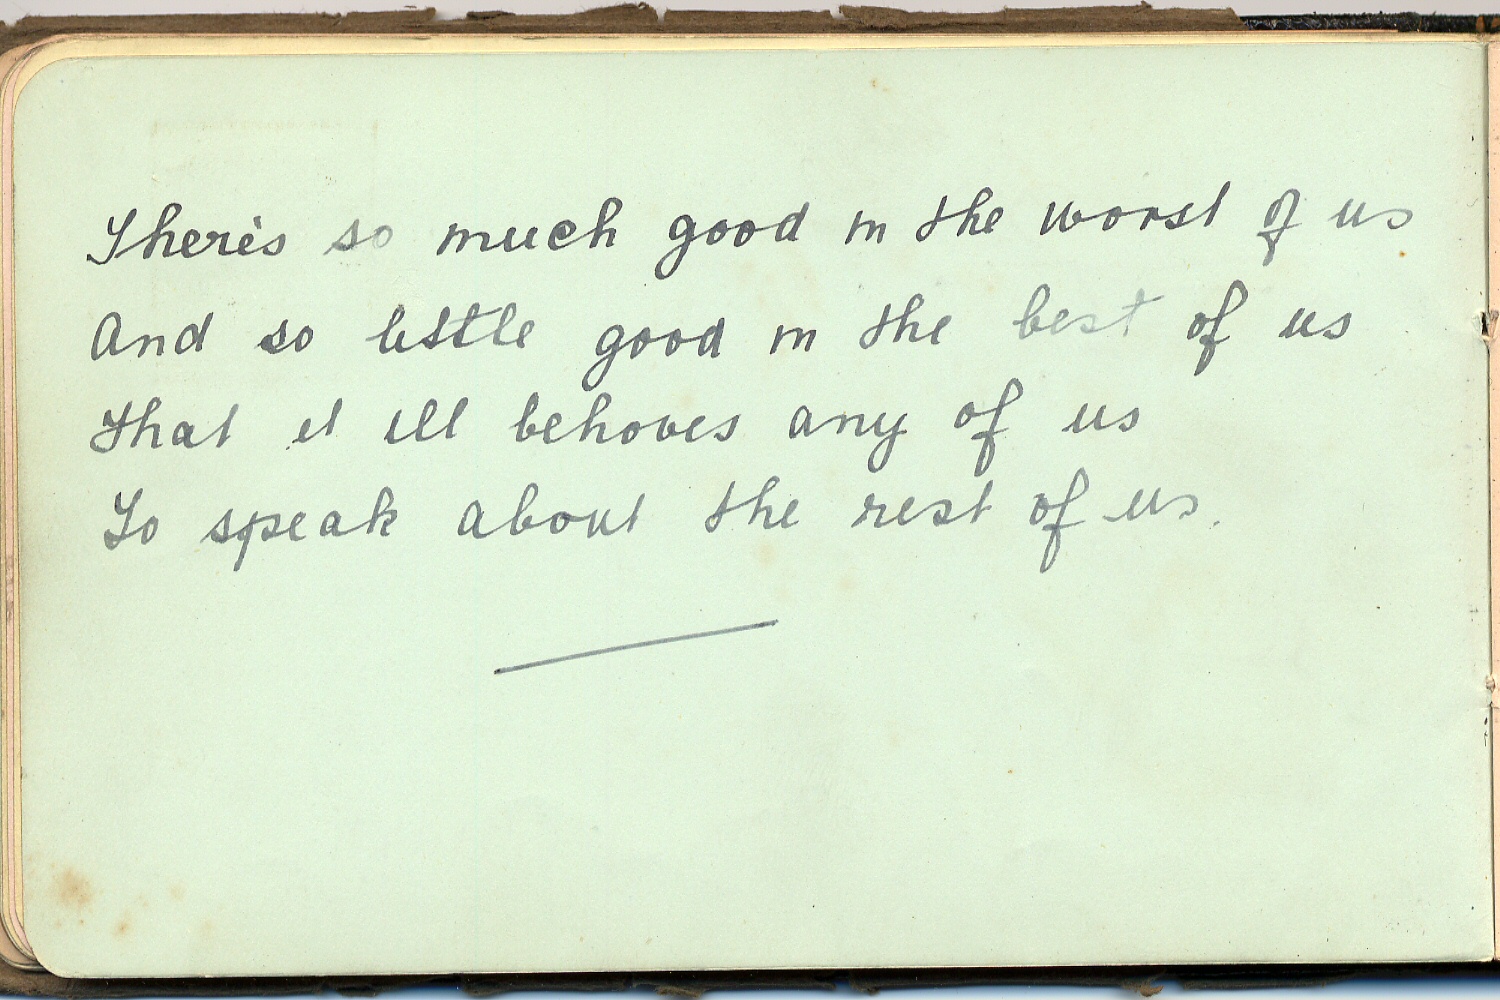 There's so much good in the worst of us
And so little good in the best of us
that it ill behoves any of us
To speak about the rest of us.